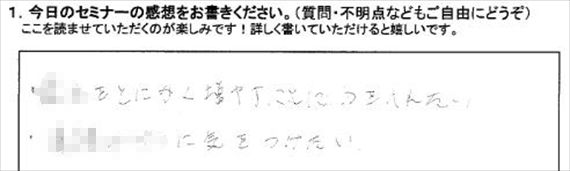 1. 今日のセミナーの感想をお書きください。(質問・不明点などもご自由にどうぞ)
ここを読ませていただくのが楽しみです!詳しく書いていただけると嬉しいです。
・ をとにかく増やすことに
・ に気をつけたい